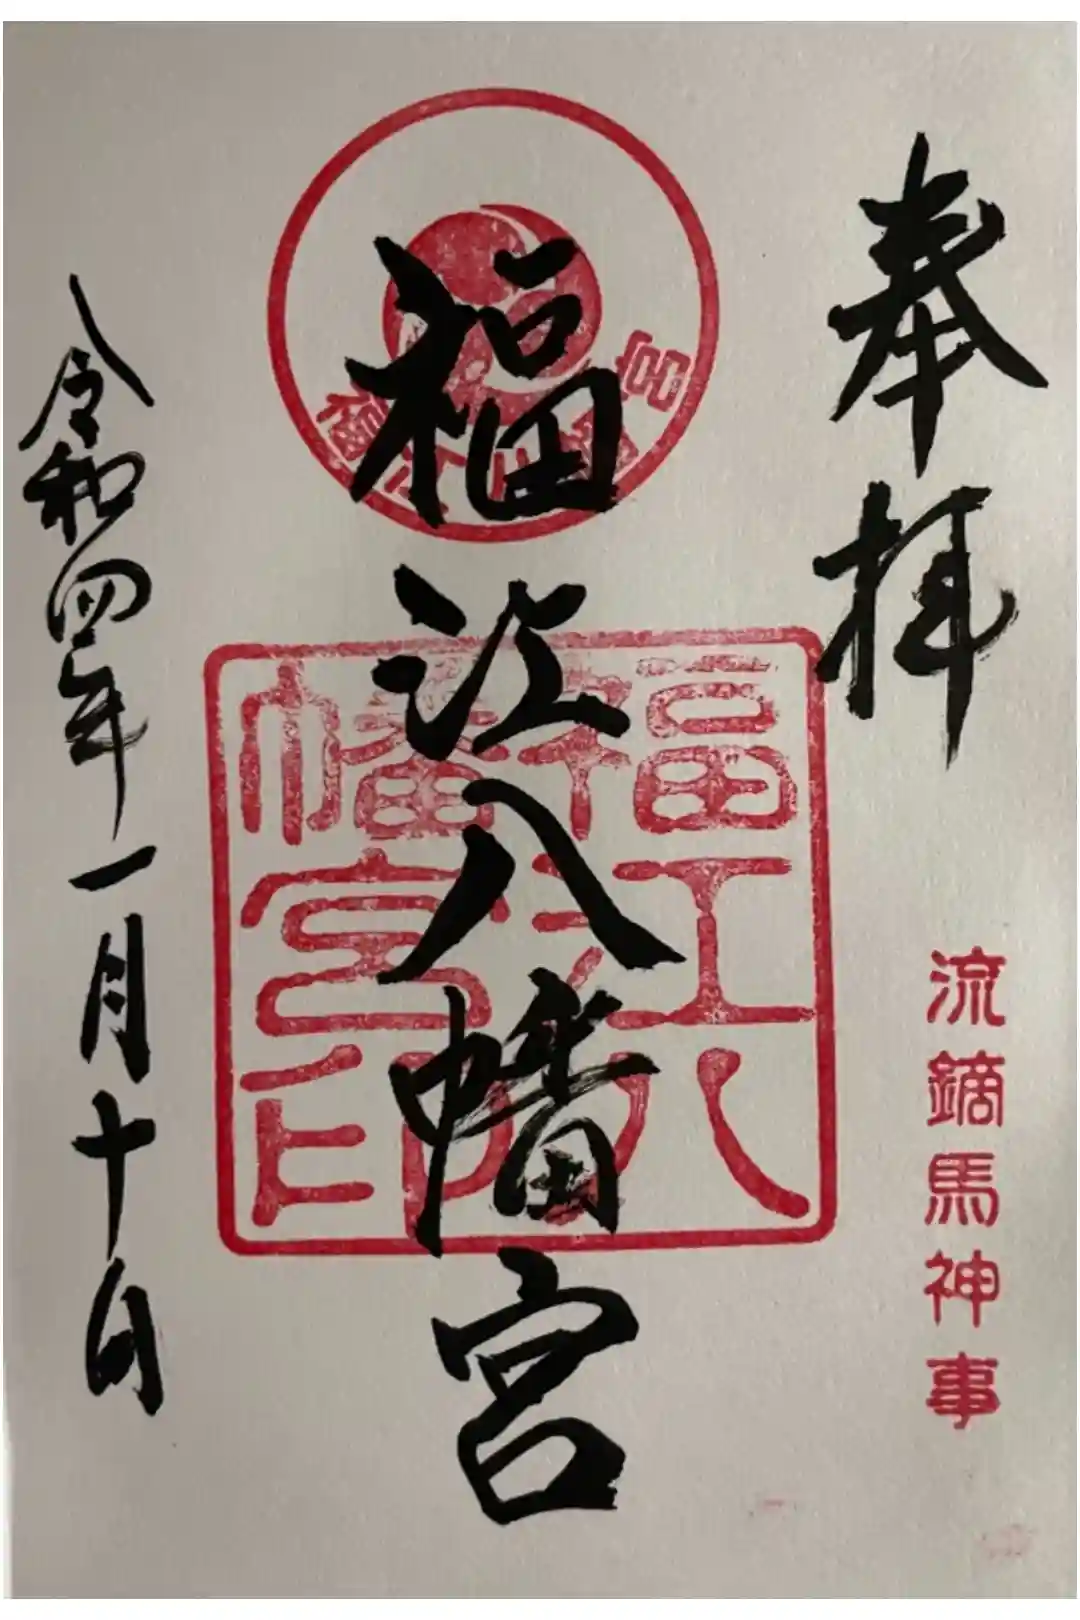 奉拝
流鏑馬神事
福江八幡宮
福江八幡宮
福江八幡宮印
令和四年一月十日